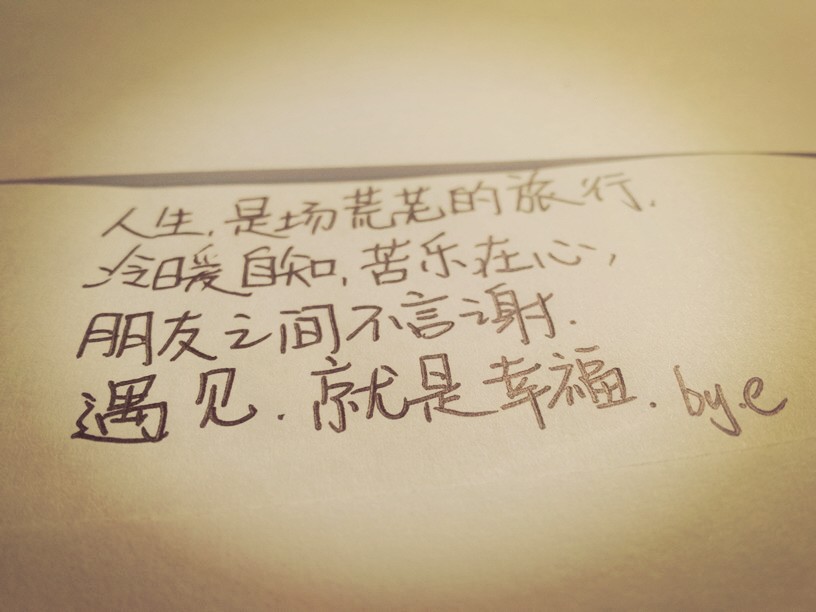 人生,是场荒芜的旅行.
冷暖自知,苦乐在心,
朋友之间不言谢.
遇见.就是幸福.bye